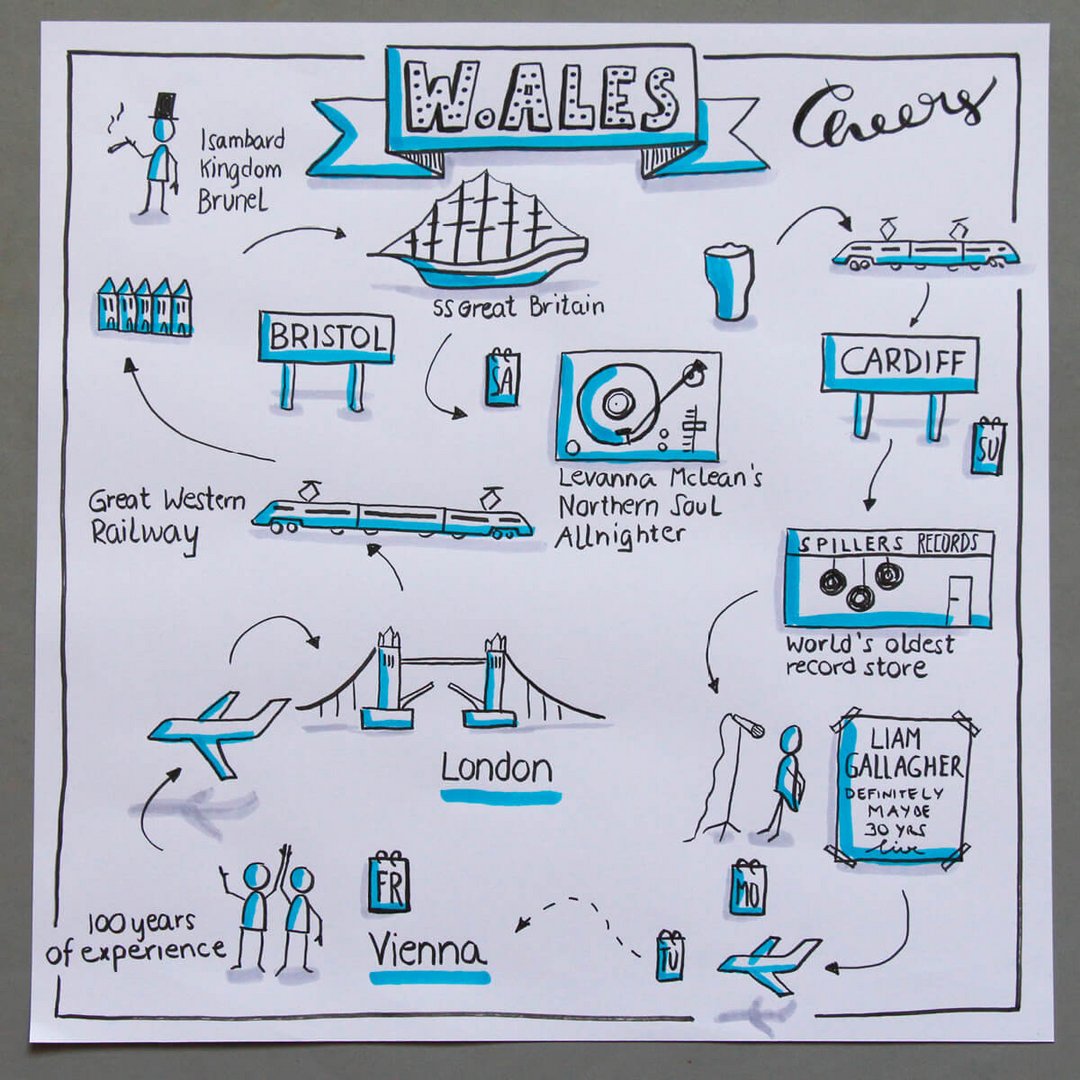 W.ALES
Cheers
Isambard
Kingdom
Brunel
SS Great Britain
BRISTOL
SA
CARDIFF
SU
Levanna McLean's
Northern Soul
Allnighter
Great Western
Railway
SPILLERS RECORDS
World's oldest
record store
London
LIAM
GALLAGHER
DEFINITELY
MAYBE
30 YRS
live
MO
FR
100 years
of experience
Vienna
TU